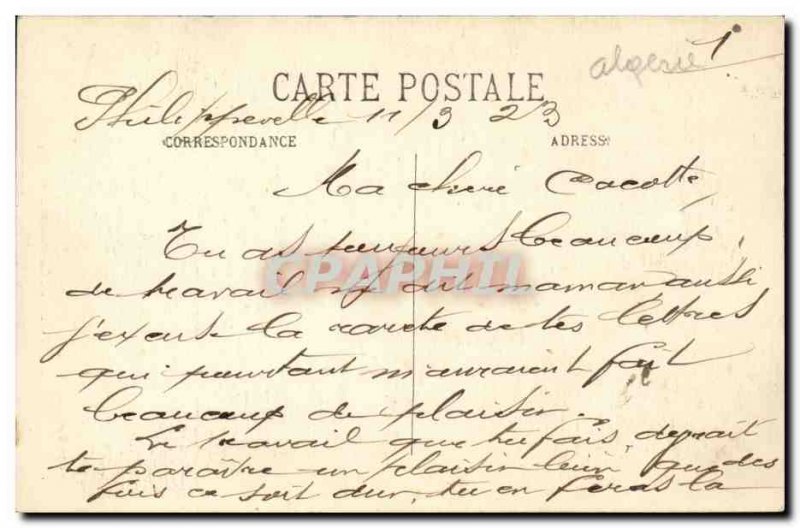 algérie 1
CARTE POSTALE
Philippeville 11/3 23
CORRESPONDANCE
ADRESSE
Ma chère Cocotte,
Tu as toujours beaucoup,
de travail dit maman aussi
j'excuse la rareté de tes lettres
qui pourtant m'auraient fait
beaucoup de plaisir.
Le travail que tu fais, devrait
te paraître un plaisir bien que des
fois ce soit dur, tu en feras la
CPAPHIL